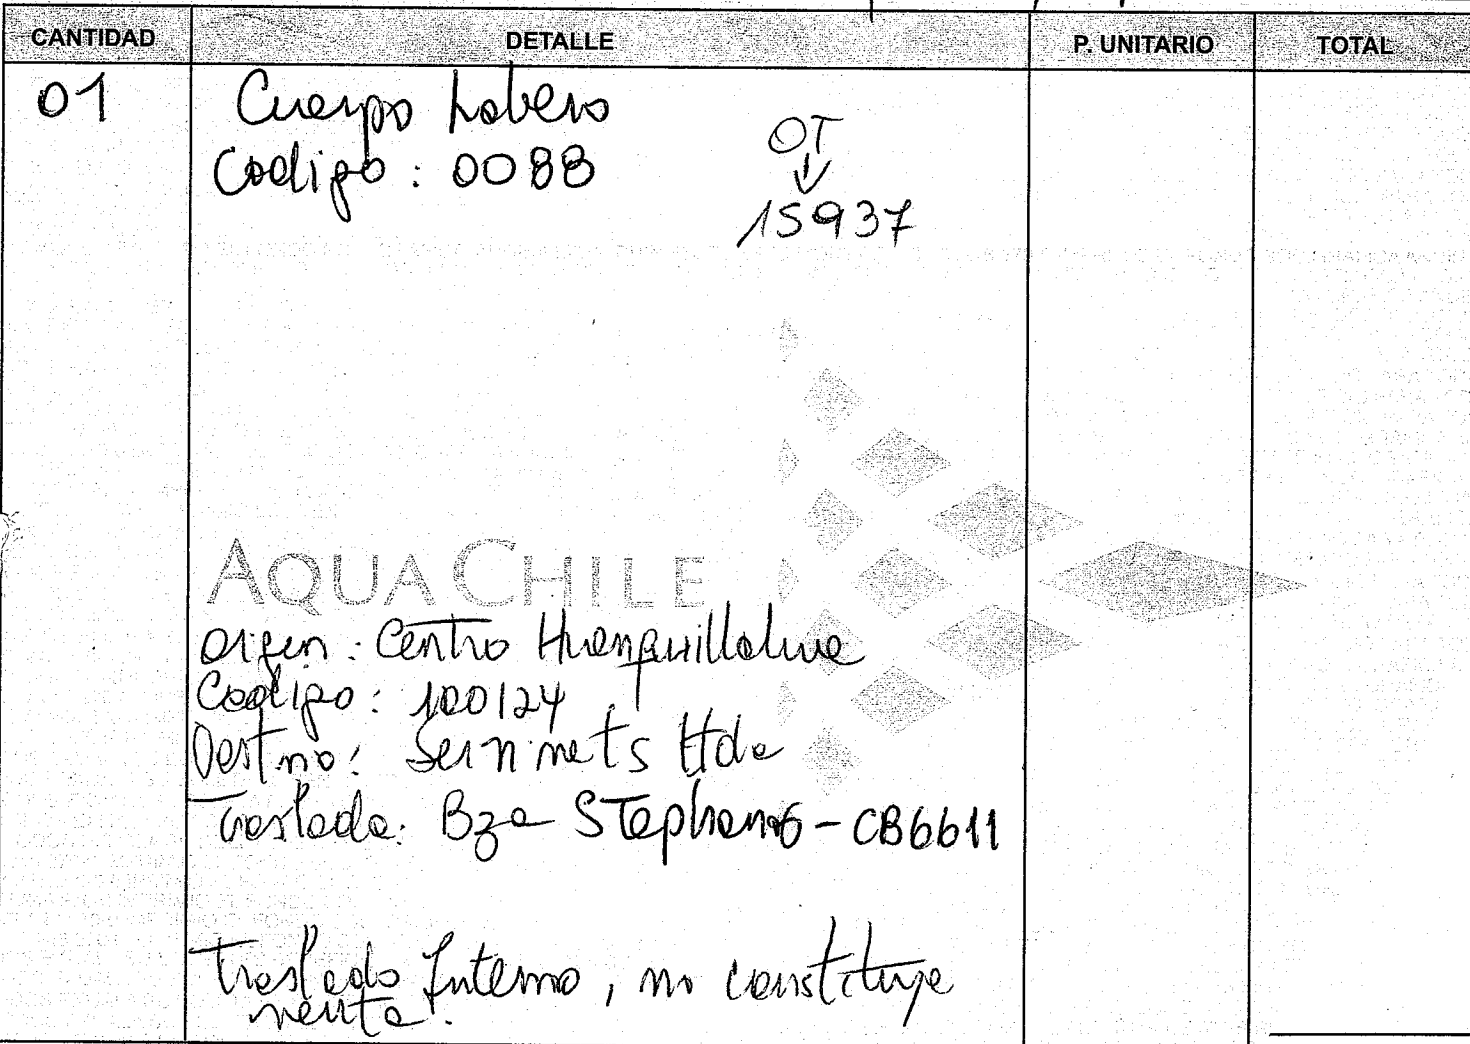 CANTIDAD DETALLE P. UNITARIO TOTAL
01 Cuerpo Lobero
Codigo: 0088
OT
15937
AQUACHILE
Origen: Centro Huenquillahue
Codigo: 100124
Destino: Servinets Ltda
Traslada: Bza Stephano - CB6611
Traslado Interno, no constituye
venta.